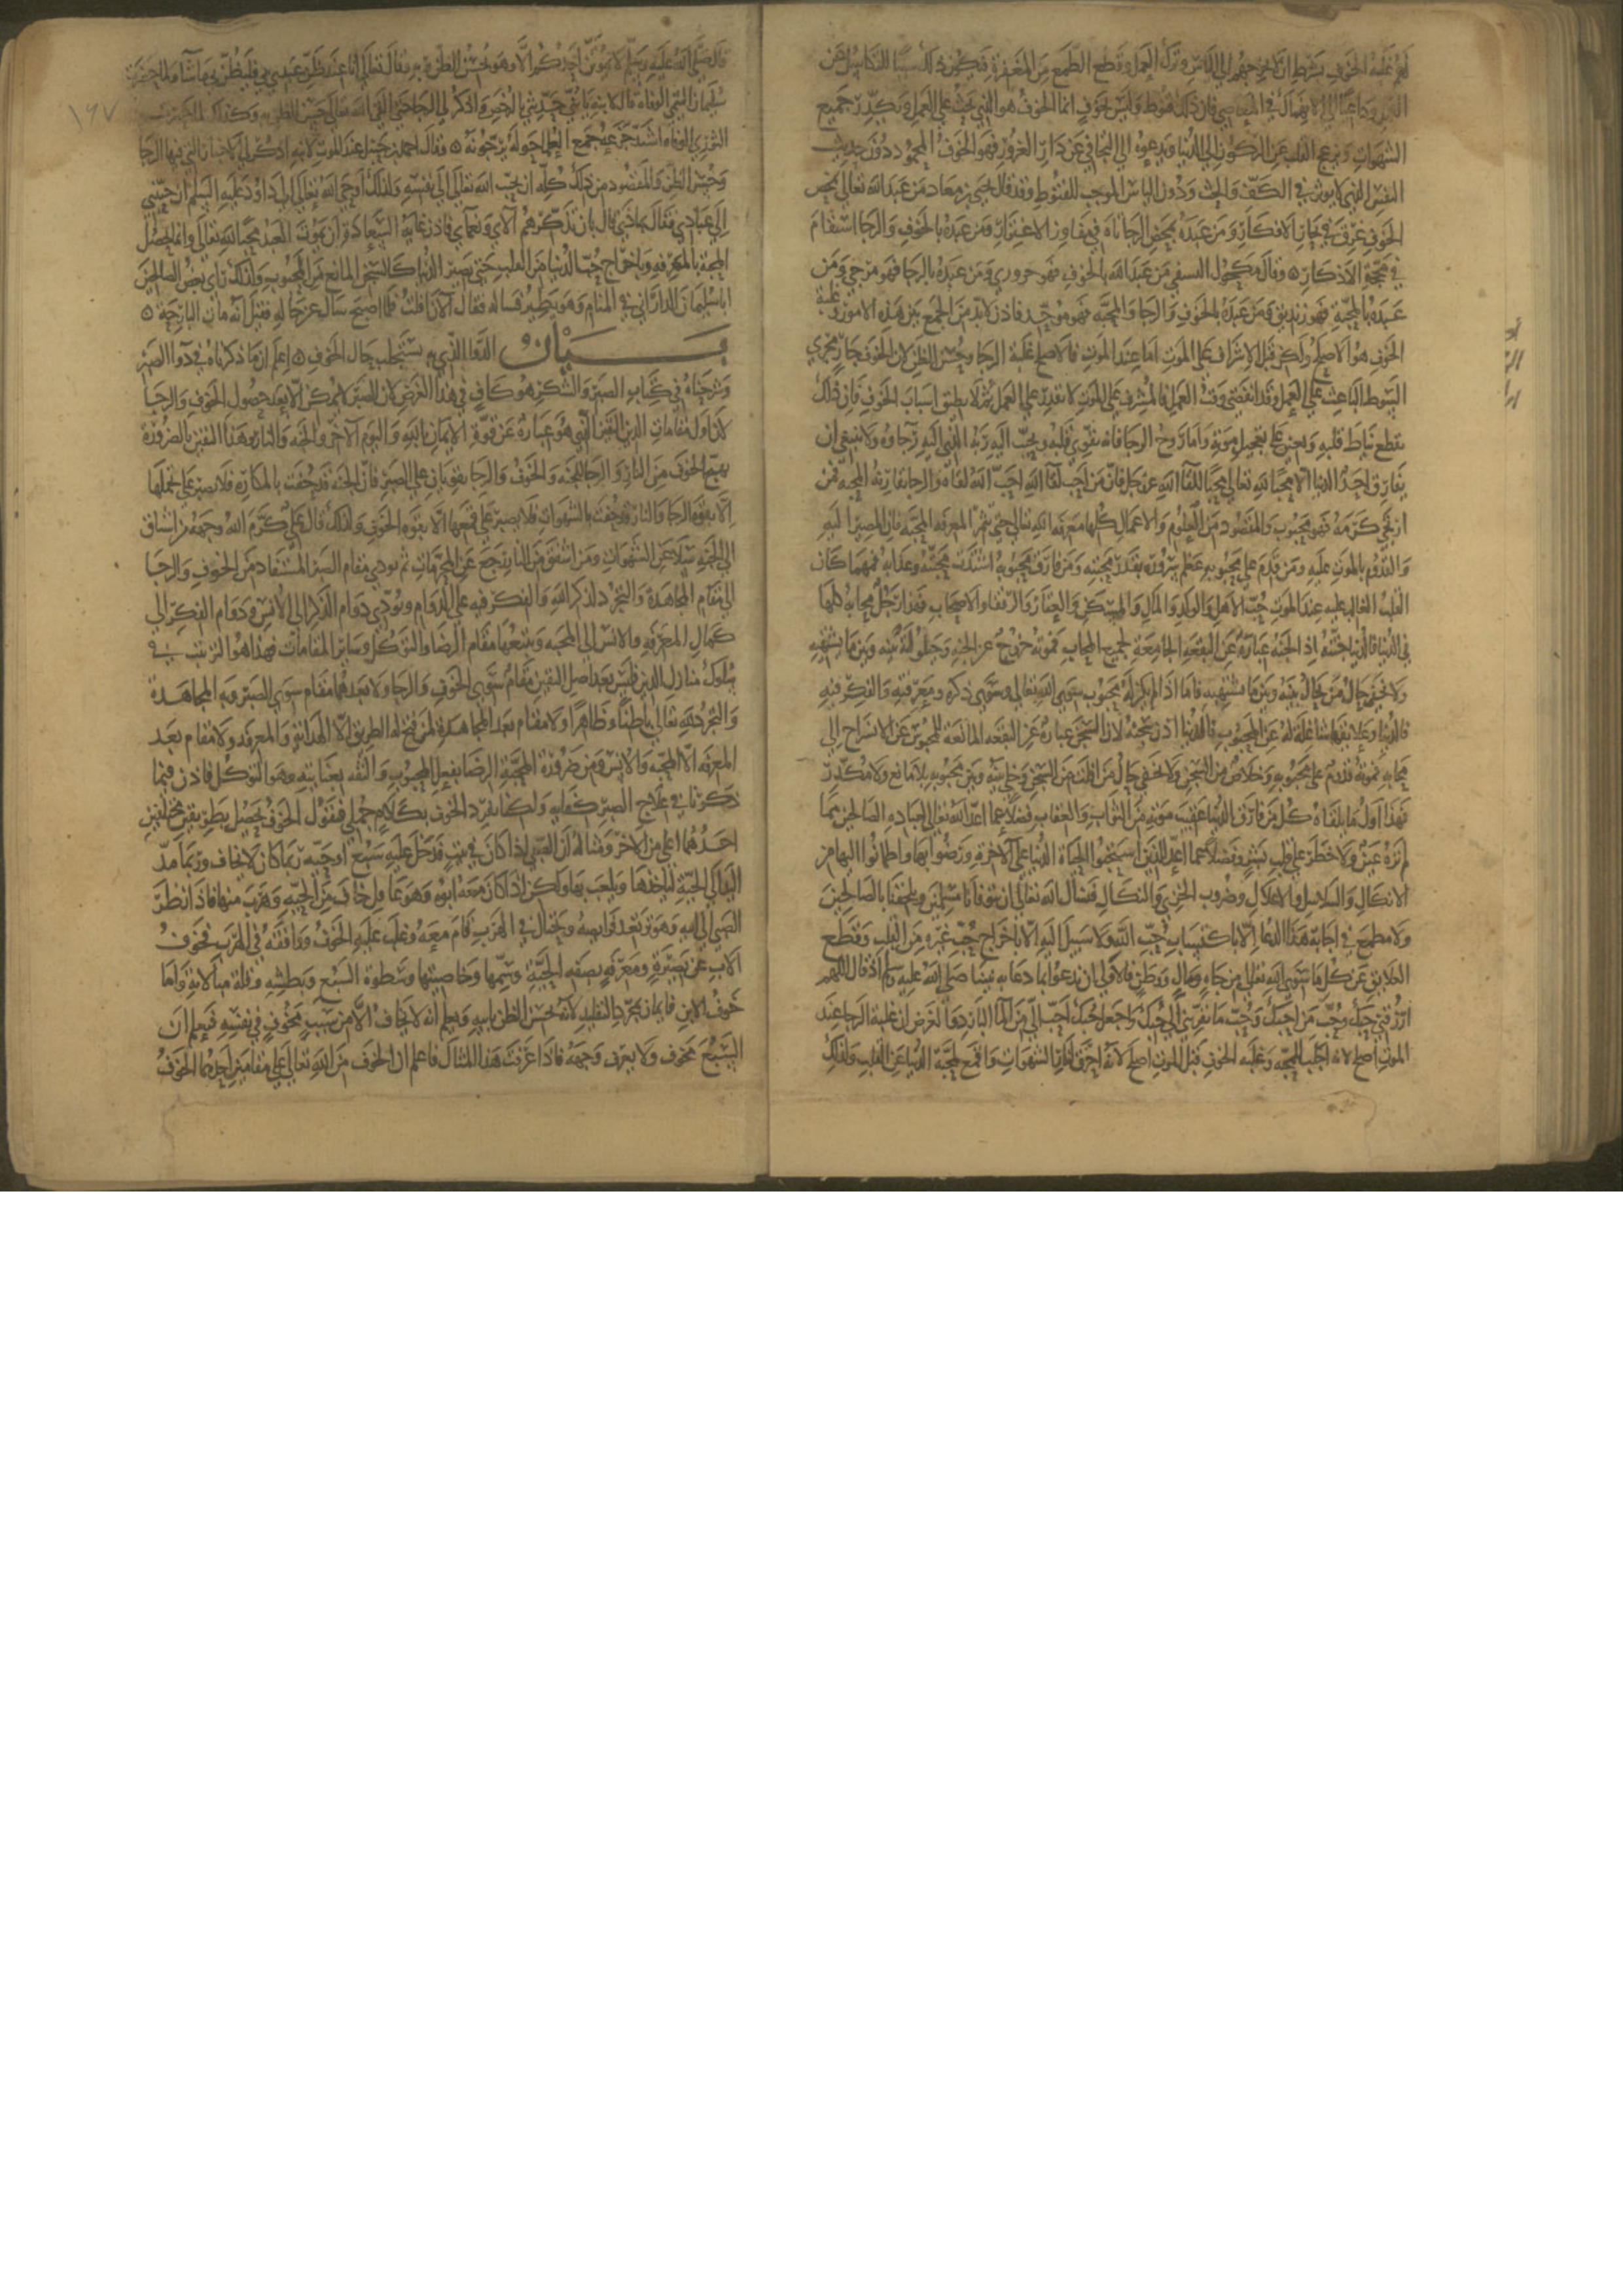 لهم غلبة الخوف بشرط ان لا يخرجهم الى الياس وترك العمل وقطع الطمع من المغفرة فيكون ذلك سببا للتكاسل عن
العمل وداعيا الى الانهماك في المعاصي فان ذلك قنوط وليس بخوف انما الخوف هو الذي يحث على العمل ويكدر جميع
الشهوات ويزعج القلب عن الركون الى الدنيا ويدعوه الى التجافي عن دار الغرور فهو الخوف المحمود دون حديث
النفس الذي لا يوثر في الكف والحث ودون الياس الموجب للقنوط وقد قال يحيى بن معاد من عبد الله تعالى بمحض
الخوف غرق في بحار الافكار ومن عبده بمحض الرجا تاه في مفاوز الاغترار ومن عبده بالخوف والرجا استقام
في محجة الاذكار وقال مكحول النسفي من عبد الله بالخوف فهو حروري ومن عبده بالرجا فهو مرجي ومن
عبده بالمحبة فهو زنديق ومن عبده بالخوف والرجا والمحبة فهو موحد فاذن لا بد من الجمع بين هذه الامور وغلبة
الخوف هو الاصلح ولكن قبل الاشراف على الموت اما عند الموت فالاصلح غلبة الرجا وحسن الظن لان الخوف جار مجرى
السوط الباعث على العمل وقد انقضى وقت العمل فالمشرف على الموت لا يقدر على العمل ثم لا يطيق اسباب الخوف فان ذلك
يقطع نياط قلبه ويعين على تعجيل موته واما روح الرجا فانه يقوي قلبه ويحبب اليه ربه الذي اليه رجاوه ولا ينبغي ان
يفارق احد الدنيا الا محبا لله تعالى محبا للقا الله عز وجل فان من احب لقا الله احب الله لقاه والرجا تقارنه المحبة فمن
ارتجي كرمه فهو محبوب والمقصود من العلوم والاعمال كلها معرفة الله تعالى حتى تثمر المعرفة المحبة فان المصير اليه
والقدوم بالموت عليه ومن قدم على محبوبه عظم سروره بقدر محبته ومن فارق محبوبه اشتدت محنته وعذابه فمهما كان
القلب الغالب عليه عند الموت حب الاهل والولد والمال والمسكن والعقار والرفقا والاصحاب فهذا رجل محابه كلها
في الدنيا فالدنيا جنته اذ الجنة عبارة عن البقعة الجامعة لجميع المحاب فموته خروج عن الجنة وحيلولة بينه وبين ما يشتهيه
ولا يخفى حال من يحال بينه وبين ما يشتهيه فاما اذا لم يكن له محبوب سوى الله تعالى وسوى ذكره ومعرفته والفكر فيه
فالدنيا وعلايقها شاغلة له عن المحبوب فالدنيا اذن سجنه لان السجن عبارة عن البقعة المانعة للمحبوس عن الانسراح الى
محابه فموته قدوم على محبوبه وخلاص من السجن ولا يخفى حال من افلت من السجن وخلي بينه وبين محبوبه بلا مانع ولا مكدر
فهذا اول ما يلقاه كل من فارق الدنيا عقيب موته من الثواب والعقاب فضلا عما اعد الله تعالى لعباده الصالحين مما
لم تره عين ولا خطر على قلب بشر وفضلا عما اعد للذين استحبوا الحياة الدنيا على الاخرة ورضوا بها واطمانوا اليها من
الانكال والسلاسل والاغلال وضروب الخزي والنكال فنسال الله تعالى ان يتوفانا مسلمين ويلحقنا بالصالحين
ولا مطمع في اجابة هذا الدعا الا باكتساب حب الله ولا سبيل اليه الا باخراج حب غيره من القلب وقطع
العلايق عن كل ما سوى الله تعالى من جاه ومال ووطن فالاولى ان ندعوا بما دعا به نبينا صلى الله عليه وسلم اذ قال اللهم
ارزقني حبك وحب من احبك وحب ما يقربني الى حبك واجعل حبك احب الي من الما البارد والغرض ان غلبة الرجا عند
الموت اصلح لانه اجلب للمحبة وغلبة الخوف قبل الموت اصلح لانه احرق لنار الشهوات واقمع لمحبة الدنيا عن القلب ولذلك
١٦٧
قال صلى الله عليه وسلم لا يموتن احدكم الا وهو يحسن الظن بربه وقال تعالى انا عند ظن عبدي بي فليظن بي ما شا ولما حضرت
سليمان التيمي الوفاة قال لابنه يا بني حدثني بالرخص واذكر لي الرجا حتى القى الله تعالى على حسن الظن به وكذلك لما حضرت
الثوري الوفاة اشتد جزعه جمع العلما حوله يرجونه وقال احمد بن حنبل عند الموت لابنه اذكر لي الاخبار التي فيها الرجا
وحسن الظن والمقصود من ذلك كله ان يحبب الله تعالى الى نفسه ولذلك اوحى الله تعالى الى داود عليه السلم ان حببني
الى عبادي فقال بماذا قال بان تذكرهم آلاي ونعماي فاذن غاية السعادة ان يموت العبد محبا لله تعالى وانما تحصل
المحبة بالمعرفة وباخراج حب الدنيا من القلب حتى تصير الدنيا كالسجن المانع من المحبوب ولذلك راى بعض الصالحين
ابا سليمان الداراني في المنام وهو يطير فساله فقال الآن افلت فلما اصبح سال عن حاله فقيل انه مات البارحة
بيان الدوا الذي به يستجلب حال الخوف اعلم ان ما ذكرناه في دوا الصبر
وشرحناه في كتاب الصبر والشكر هو كاف في هذا الغرض لان الصبر لا يمكن الا بعد حصول الخوف والرجا
لان اول مقامات الدين اليقين الذي هو عبارة عن قوة الايمان بالله واليوم الآخر والجنة والنار وهذا اليقين بالضرورة
يهيج الخوف من النار والرجا للجنة والخوف والرجا يقويان على الصبر فان الجنة قد حفت بالمكاره فلا يصبر على تحملها
الا بقوة الرجا والنار قد حفت بالشهوات فلا يصبر على قمعها الا بقوة الخوف ولذلك قال علي كرم الله وجهه من اشتاق
الى الجنة سلا عن الشهوات ومن اشفق من النار رجع عن المحرمات ثم يودي مقام الصبر المستفاد من الخوف والرجا
الى مقام المجاهدة والتجرد لذكر الله والفكر فيه على الدوام ويودي دوام الذكر الى الانس ودوام الفكر الى
كمال المعرفة والانس الى المحبة ويتبعها مقام الرضا والتوكل وساير المقامات فهذا هو الترتيب في
سلوك منازل الدين فليس بعد اصل اليقين مقام سوى الخوف والرجا ولا بعدهما مقام سوى الصبر وبه المجاهدة
والتجرد لله تعالى باطنا وظاهرا ولا مقام بعد المجاهدة لمن فتح له الطريق الا الهداية والمعرفة ولا مقام بعد
المعرفة الا المحبة والانس ومن ضرورة المحبة الرضا بفعل المحبوب والثقة بعنايته وهو التوكل فاذن فيما
ذكرنا في علاج الصبر كفاية ولكنا نفرد الخوف بكلام جملي فنقول الخوف يحصل بطريقين مختلفين
احدهما اعلى من الاخر ومثاله ان الصبي اذا كان في بيت فدخل عليه سبع او حية ربما كان لا يخاف وربما مد
اليد الى الحية لياخذها ويلعب بها ولكن اذا كان معه ابوه وهو عاقل خاف من الحية وهرب منها فاذا نظر
الصبي الى ابيه وهو ترتعد فرايصه ويحتال في الهرب قام معه وغلب عليه الخوف ووافقه في الهرب فخوف
الاب عن بصيرة ومعرفة بصفة الحية وسمها وخاصيتها وسطوة السبع وبطشه وقلة مبالاته واما
خوف الابن فايمان بمجرد التقليد لانه يحسن الظن بابيه ويعلم انه لا يخاف الا من سبب مخوف في نفسه فيعلم ان
السبع مخوف ولا يعرف وجهه فاذا عرفت هذا المثال فاعلم ان الخوف من الله تعالى على مقامين احدهما الخوف